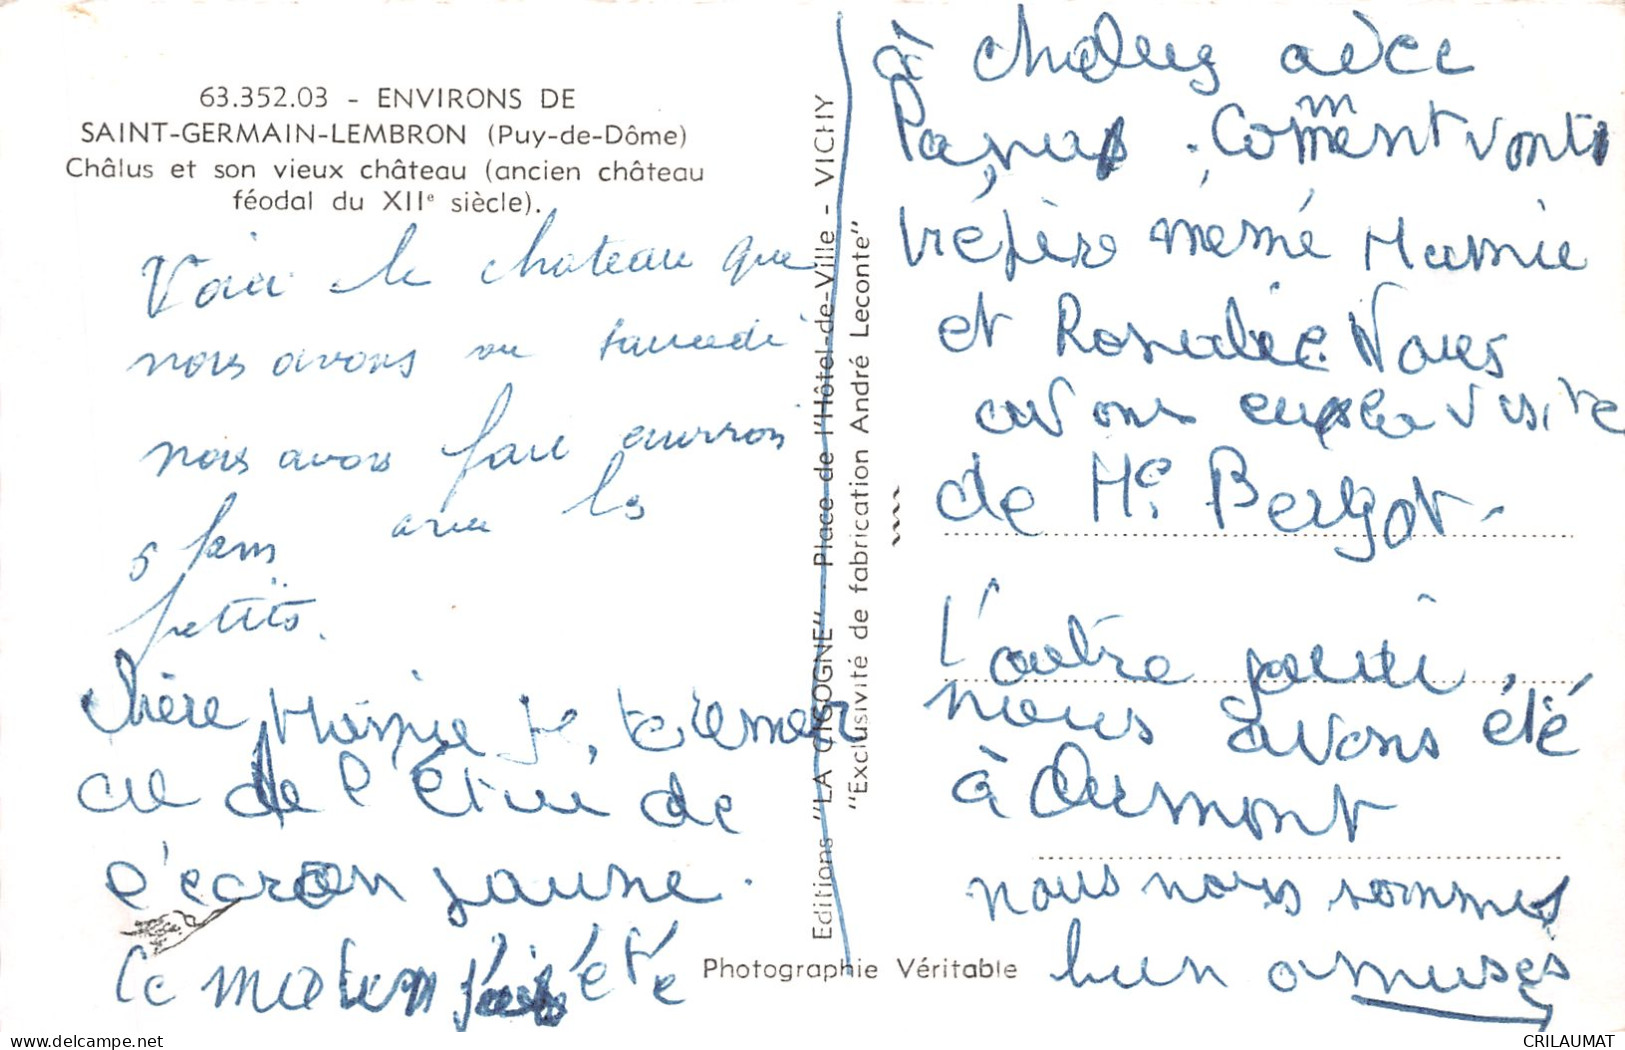 63.352.03 - ENVIRONS DE
SAINT-GERMAIN-LEMBRON (Puy-de-Dôme)
Châlus et son vieux château (ancien château
féodal du XIIe siècle).
Voici le chateau que
nous avons vu samedi
nous avons fait environ
5 kms avec les
petits.
Chère Mamie je te remer
cie de l'étui de
l'ecran jaune.
Ce matin j'ai été
Editions "LA CIGOGNE" - Place de l'Hôtel-de-Ville - VICHY
"Exclusivité de fabrication André Leconte"
Photographie Véritable
à chalus avec
Papa. Comment vont
mémé Mamie
et Rosalie. Nous
avons eu la visite
de Me Bergot.
L'autre jeudi,
nous avons été
à Ormont
nous nous sommes
bien amusés
CRILAUMAT